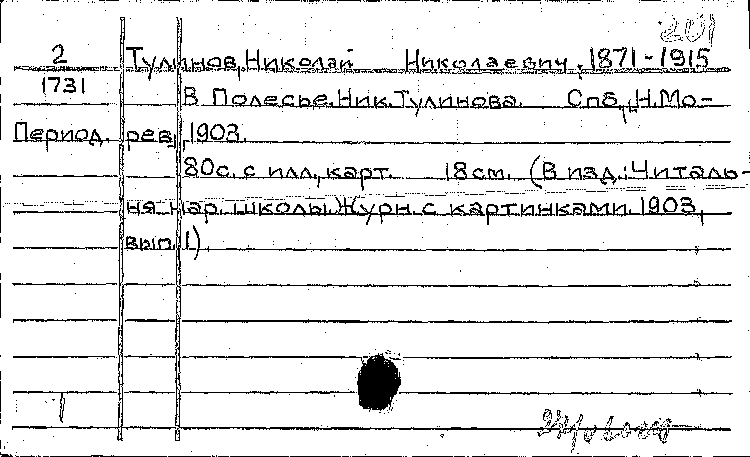 201
2 Тулинов, Николай Николаевич, 1871-1915
1731
В Полесье. Ник. Тулинова. Спб., Н. Мо-
Период. рев, 1903.
80с. с илл., карт. 18см. (В изд.: Читаль-
ня нар. школы. Журн. с картинками. 1903,
вып. 1).
1